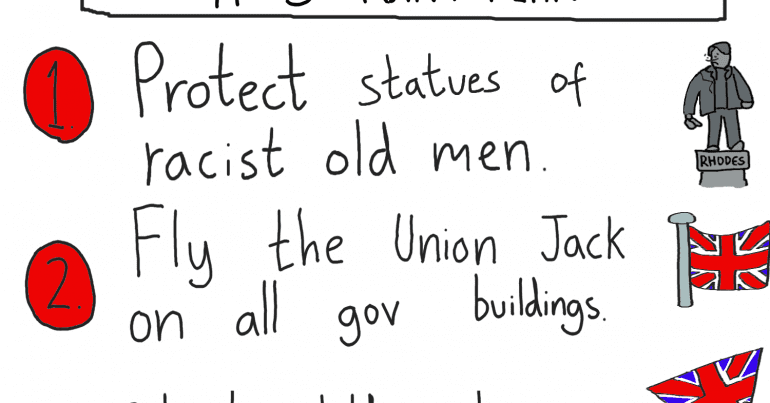 1. Protect statues of
racist old men.
RHODES
2. Fly the Union Jack
on all gov buildings.